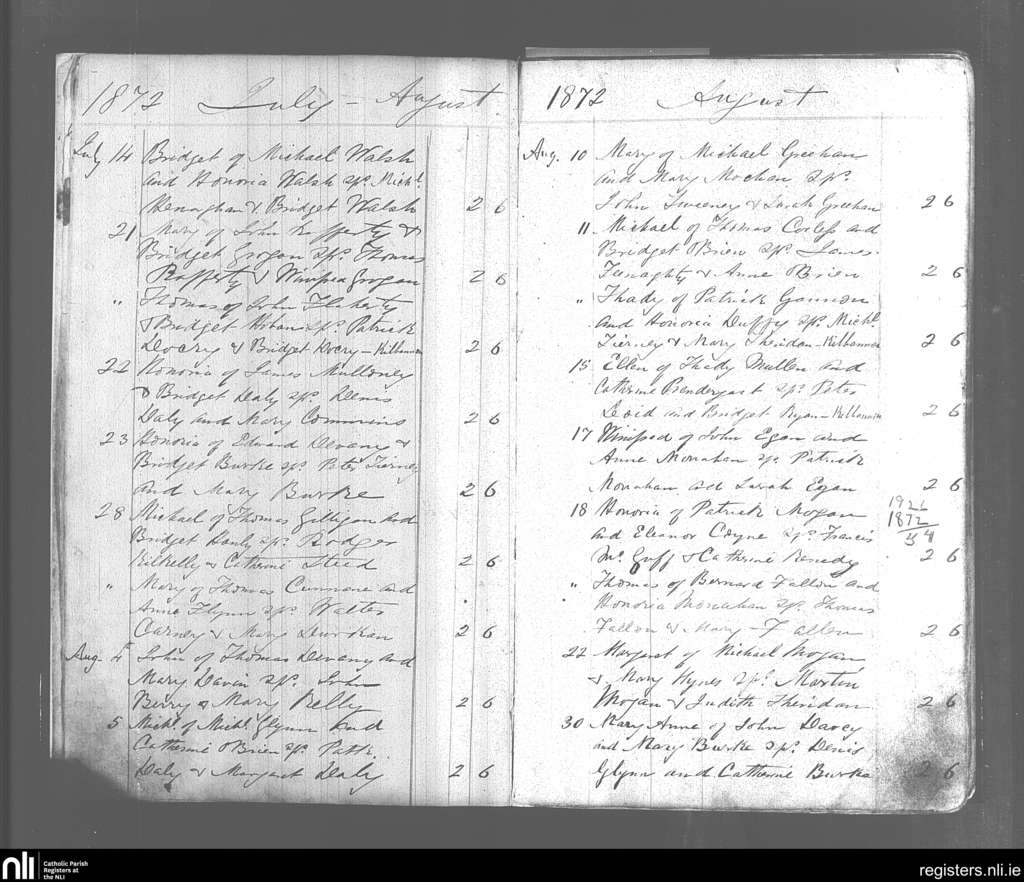 1872 July - August
July 14 Bridget of Michael Walsh
and Honoria Walsh sps. Michl.
Menaghan & Bridget Walsh 2 6
21 Mary of John Rafferty &
Bridget Grogan sps. Thomas
Rafferty & Winifred Grogan 2 6
" Thomas of John Flaherty
& Bridget sps. Patrick
Docry & Bridget Docry - Kilbannon 2 6
22 Honoria of James Mulloney
& Bridget Daly sps. Denis
Daly and Mary Commins 2 6
23 Honoria of Edward Devany &
Bridget Burke sps. Peter Tierney
and Mary Burke 2 6
28 Michael of Thomas Gilligan and
Bridget Hanly sps. Rodger
Kilkelly & Catherine Steed 2 6
" Mary of Thomas Cunnane and
Anne Flynn sps. Walter
Carney & Mary Durkan 2 6
Aug. 4 John of Thomas Devany and
Mary Davin sps. John
Berry & Mary Kelly 2 6
5 Michl. of Michl. Glynn and
Catherine O'Brien sps. Patk.
Daly & Margaret Daly 2 6
1872 August
Aug. 10 Mary of Michael Greehan
and Mary Mochan sps.
John Sweeney & Sarah Greehan 2 6
11 Michael of Thomas Corless and
Bridget O'Brien sps. James
Feenaghty & Anne O'Brien 2 6
" Thady of Patrick Gannon
and Honoria Duffy sps. Michl.
Tierney & Mary Sheridan - Kilbannon 2 6
15 Ellen of Thady Mullen and
Catherine Prendergast sps. Peter
and Bridget Ryan - Kilbannon 2 6
17 Winifred of John Egan and
Anne Monahan sps. Patrick
Monahan and Sarah Egan 2 6
18 Honoria of Patrick Mogan
and Eleanor Coyne sps. Francis
Mc. Guff & Catherine Kenedy 2 6
1926
1872
54
" Thomas of Bernard Fallon and
Honoria Monahan sps. Thomas
Fallon & Mary Fallon 2 6
22 Margaret of Michael Mogan
& Mary Hynes sps. Martin
Mogan & Judith Sheridan 2 6
30 Mary Anne of John Davey
and Mary Burke sps. Denis
Glynn and Catherine Burke 2 6
nli
Catholic Parish
Registers at
the NLI
registers.nli.ie